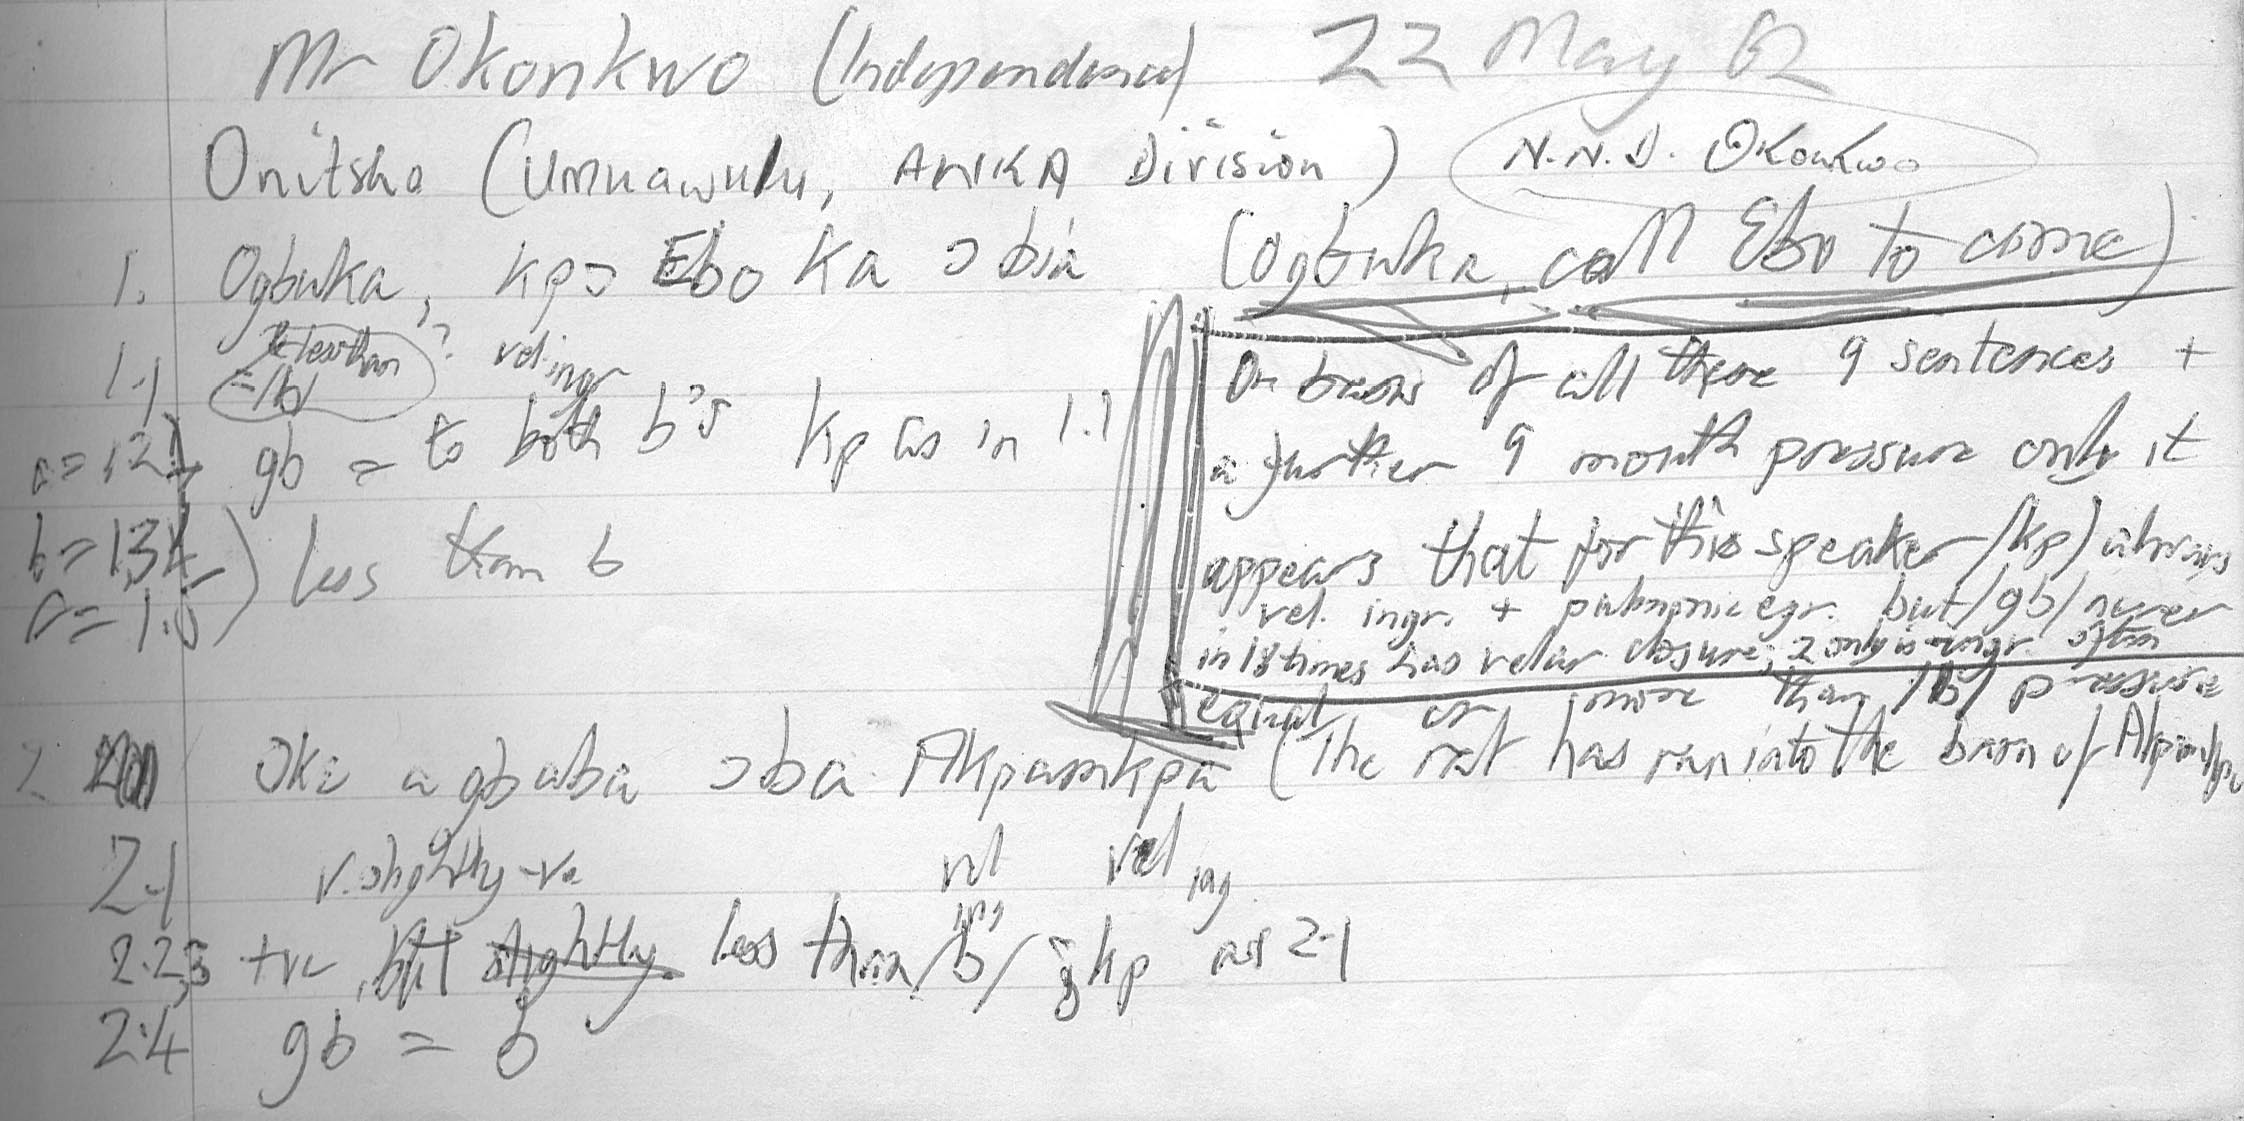 Mr Okonkwo (Independence) 22 May 62
Onitsha (Umuawulu, AWKA Division) N.N.D. Okonkwo
1. Ogbuka, kpɔ Ebo ka ɔ bia (Ogbuka, call Ebo to come)
1.1 less than = /b/ ? vel. ingr
a = 1.2 gb = to both b's kp as in 1.1
b = 1.3,4
c = 1.5 ) less than b
On basis of all these 9 sentences +
a further 9 mouth pressure only it
appears that for this speaker /kp/ always
vel. ingr. + pulmonic egr. but /gb/ never
in 18 times has velar closure; 2 only is ingr. often
equal or more than /b/ pressure
2 Oke a gbaba ɔba Akpamkpa (The rat has ran into the barn of
2.1 v. slightly -ve vel ing vel ing
2.2,3 +ve, but slightly less than /b/; kp as 2.1
2.4 gb = b